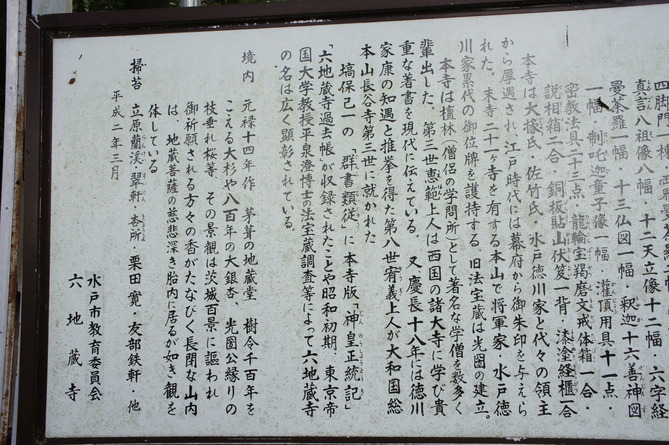 四脚門一棟・両界曼荼羅
真言八祖像八幅・十二天立像十二幅・六字経
曼荼羅一幅・十三仏図一幅・釈迦十六善神図
一幅・制吒迦童子像一幅・灌頂用具十一点・
密教法具二十三点・龍輪宝羯磨文戒体箱一合・
説相箱二合・銅板貼山伏笈一背・漆塗経櫃一合
本寺は大掾氏、佐竹氏、水戸徳川家と代々の領主
から厚遇され、江戸時代には幕府から御朱印を与えら
れた。末寺二十一ヶ寺を有する本山で将軍家・水戸徳
川家累代の御位牌を護持する。旧法宝蔵は光圀の建立。
本寺は檀林（僧侶の学問所）として著名な学僧を数多く
輩出した。第三世恵範上人は西国の諸大寺に学び貴
重な著書を現代に伝えている。又、慶長十八年には徳川
家康の知遇と推挙を得た第八世宥義上人が大和国総
本山長谷寺第三世に就かれた
塙保己一の「群書類従」に本寺版「神皇正統記」
「六地蔵寺過去帳」が収録されたことや昭和初期、東京帝
国大学教授平泉澄博士の法宝蔵調査等によって六地蔵寺
の名は広く顕彰されている。
境内 元禄十四年作、茅葺の地蔵堂、樹令千百年を
こえる大杉や八百年の大銀杏、光圀公縁りの
枝垂れ桜等、その景観は茨城百景に謳われ
御祈願される方々の香がたなびく長閑な山内
は、地蔵菩薩の慈悲深き胎内に居るが如き観を
体している
掃苔 立原蘭渓、翠軒、杏所、栗田寛・友部鉄軒・他
平成二年三月
水戸市教育委員会
六地蔵寺